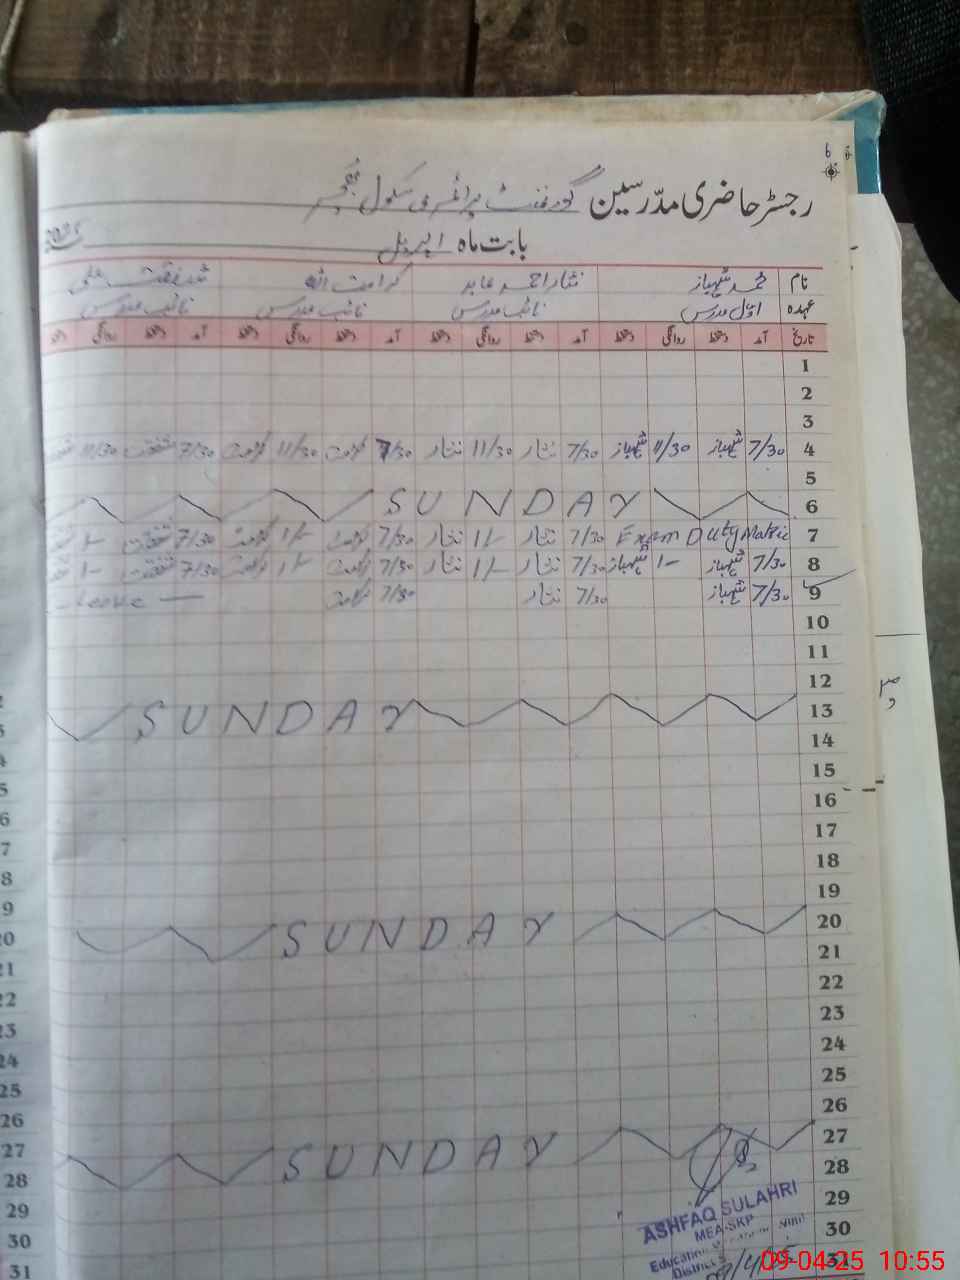 رجسٹر حاضری مدرسین گورنمنٹ پرائمری سکول
بابت ماہ اپریل 2025
نام محمد شہباز نثار احمد عابد کرامت اللہ شفقت علی
عہدہ اوّل مدرس نائب مدرس نائب مدرس نائب مدرس
تاریخ آمد دستخط روانگی دستخط آمد دستخط روانگی دستخط آمد دستخط روانگی دستخط آمد دستخط روانگی دستخط
1
2
3
4 7/30 شہباز 11/30 شہباز 7/30 نثار 11/30 نثار 7/30 کرامت 11/30 کرامت 7/30 شفقت 11/30 شفقت
5
6 SUNDAY
7 Exam Duty Matric 7/30 نثار 1/- نثار 7/30 کرامت 1/- کرامت 7/30 شفقت 1-
8 7/30 شہباز 1- شہباز 7/30 نثار 1/- نثار 7/30 کرامت 1/- کرامت 7/30 شفقت 1-
9 7/30 شہباز 7/30 نثار 7/30 کرامت — Leave —
10
11
12
13 SUNDAY
14
15
16
17
18
19
20 SUNDAY
21
22
23
24
25
26
27 SUNDAY
28
29
30
31
ASHFAQ SULAHRI
MEA-SKP
09-04-25 10:55